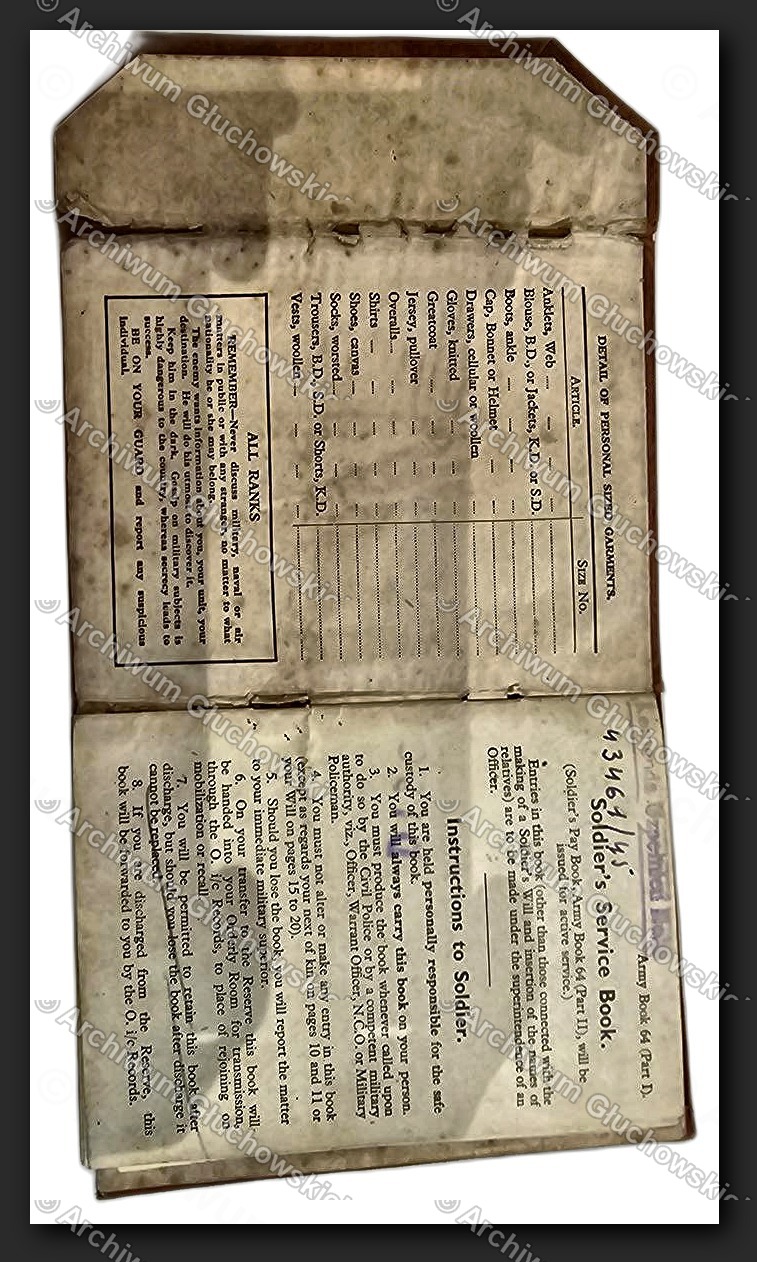 DETAIL OF PERSONAL SIZED GARMENTS.
ARTICLE. SIZE NO.
Anklets, Web
Blouse, B.D., or Jackets, K.D. or S.D.
Boots, ankle
Cap, Bonnet or Helmet
Drawers, cellular or woollen
Gloves, knitted
Greatcoat
Jersey, pullover
Overalls
Shirts
Shoes, canvas
Socks, worsted
Trousers, B.D., S.D. or Shorts, K.D.
Vests, woollen
ALL RANKS
REMEMBER—Never discuss military, naval or air
matters in public or with any stranger, no matter to what
nationality he or she may belong.
The enemy wants information about you, your unit, your
destination. He will do his utmost to discover it.
Keep him in the dark. Gossip on military subjects is
highly dangerous to the country, whereas secrecy leads to
success.
BE ON YOUR GUARD and report any suspicious
individual.
Army Book 64 (Part I).
43461/45
Soldier's Service Book.
(Soldier's Pay Book, Army Book 64 (Part II), will be
issued for active service.)
Entries in this book (other than those connected with the
making of a Soldier's Will and insertion of the names of
relatives) are to be made under the superintendence of an
Officer.
Instructions to Soldier.
1. You are held personally responsible for the safe
custody of this book.
2. You will always carry this book on your person.
3. You must produce the book whenever called upon
to do so by the Civil Police or by a competent military
authority, viz., Officer, Warrant Officer, N.C.O. or Military
Policeman.
4. You must not alter or make any entry in this book
(except as regards your next of kin on pages 10 and 11 or
your Will on pages 15 to 20).
5. Should you lose the book, you will report the matter
to your immediate military superior.
6. On your transfer to the Reserve this book will
be handed into your Orderly Room for transmission,
through the O. i/c Records, to place of rejoining on
mobilization or recall.
7. You will be permitted to retain this book after
discharge, but should you lose the book after discharge it
cannot be replaced.
8. If you are discharged from the Reserve, this
book will be forwarded to you by the O. i/c Records.
© Archiwum Głuchowskich